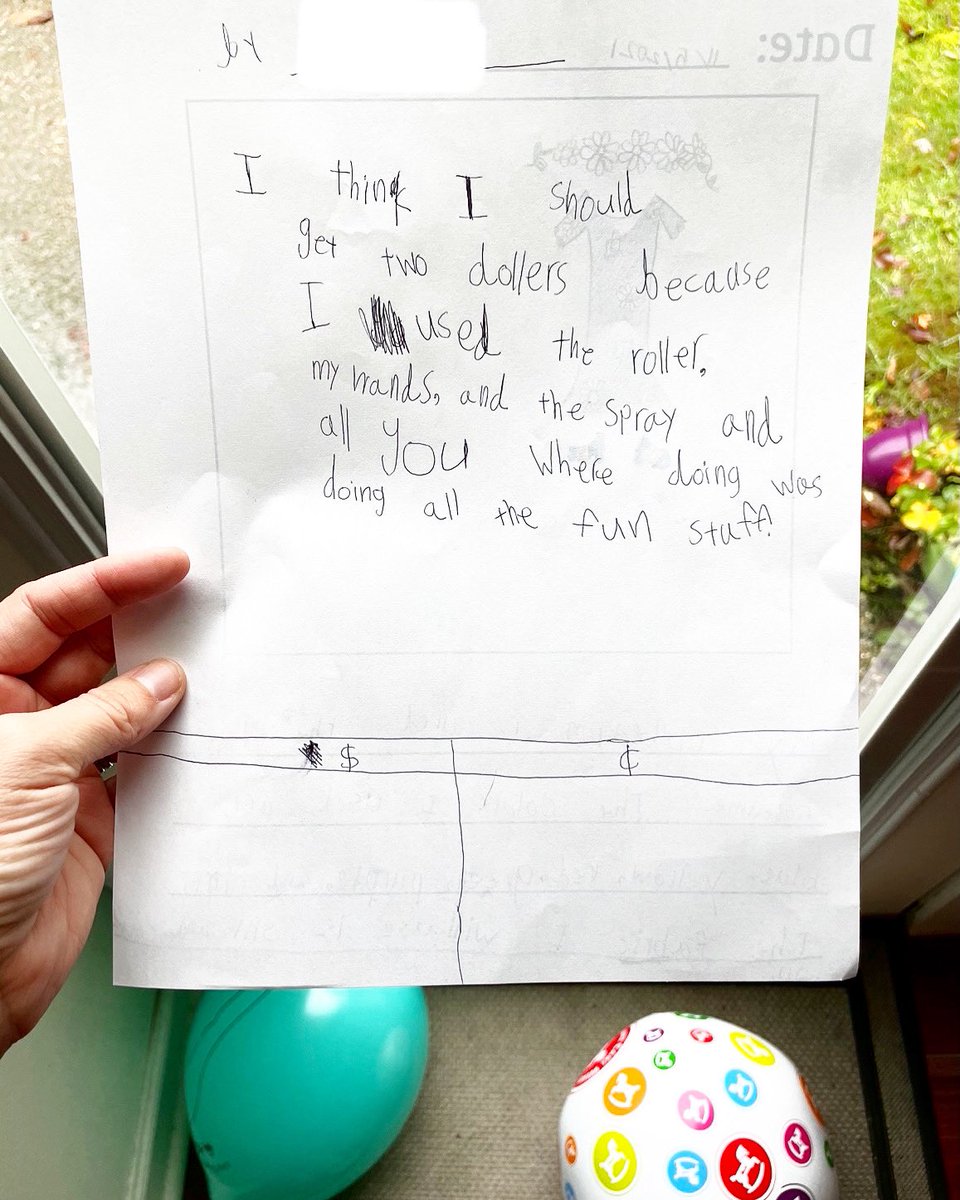 by
Date: 11/5/2021
I think I should
get two dollers because
I used the roller,
my hands, and the spray and
all you where doing was
doing all the fun stuff!
$ ¢